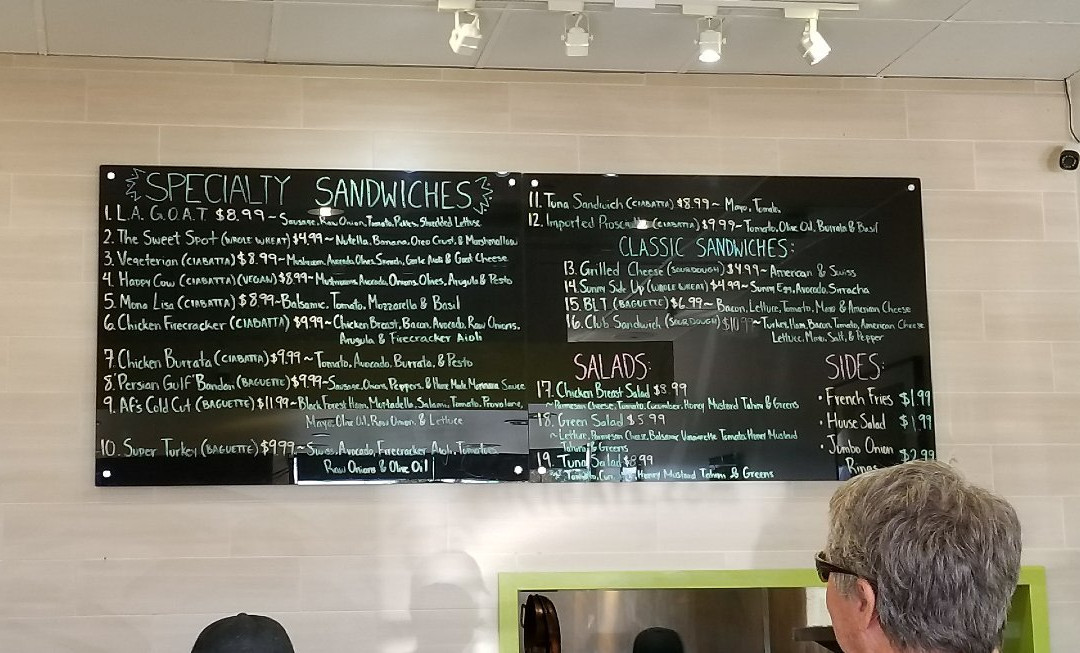 SPECIALTY SANDWICHES
1. L.A. G.O.A.T $8.99~ Sausage, Raw Onion, Tomato, Pickles, Shredded Lettuce
2. The Sweet Spot (WHOLE WHEAT) $4.99~ Nutella, Banana, Oreo Crust, & Marshmallow
3. Vegeterian (CIABATTA) $8.99~ Mushroom, Avocado, Olives, Spinach, Garlic Aioli & Goat Cheese
4. Happy Cow (CIABATTA) (VEGAN) $8.99~ Mushrooms, Avocado, Onions, Olives, Arugula & Pesto
5. Mona Lisa (CIABATTA) $8.99~ Balsamic, Tomato, Mozzarella & Basil
6. Chicken Firecracker (CIABATTA) $9.99~ Chicken Breast, Bacon, Avocado, Raw Onions,
Arugula & Firecracker Aioli
7. Chicken Burrata (CIABATTA) $9.99~ Tomato, Avocado, Burrata, & Pesto
8. Persian Gulf Bandari (BAGUETTE) $9.99~ Sausage, Onion, Peppers, & Home Made Marinara Sauce
9. Af's Cold Cut (BAGUETTE) $11.99~ Black Forest Ham, Mortadello, Salami, Tomato, Provolone,
Mayo, Olive Oil, Raw Onion, & Lettuce
10. Super Turkey (BAGUETTE) $9.99~ Swiss, Avocado, Firecracker Aioli, Tomatoes,
Raw Onions & Olive Oil
11. Tuna Sandwich (CIABATTA) $8.99~ Mayo, Tomato,
12. Imported (CIABATTA) $9.99~ Tomato, Olive Oil, Burrata & Basil
CLASSIC SANDWICHES:
13. Grilled Cheese (SOURDOUGH) $4.99~ American & Swiss
14. Sunny Side Up (WHOLE WHEAT) $4.99~ Sunny Egg, Avocado, Sirracha
15. BLT (BAGUETTE) $6.99~ Bacon, Lettuce, Tomato, Mayo & American Cheese
16. Club Sandwich (SOURDOUGH) ~ Turkey, Ham, Bacon, Tomato, American Cheese
Lettuce, Mayo, Salt, & Pepper
SALADS:
17. Chicken Breast Salad $8.99
~ Parmesan Cheese, Tomato, Cucumber, Honey Mustard Tahini & Greens
18. Green Salad $5.99
~ Lettuce, Parmesan Cheese, Balsamic Vinaigrette Tomato, Honey Mustard
Tahini & Greens
19. Tuna Salad $8.99
Tomato, Honey Mustard Tahini & Greens
SIDES:
• French Fries $1.99
• House Salad $1.99
• Jumbo Onion $2.99
Rings